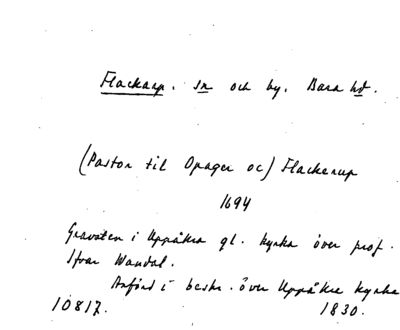 Flackarp. sn och by. Bara hd.
(Pastor til Opager oc) Flackerup
1694
Gravsten i Uppåkra gl. kyrka över prof.
Ifvar Wandal.
Anförd i beskr. över Uppåkra kyrka
10817. 1830.